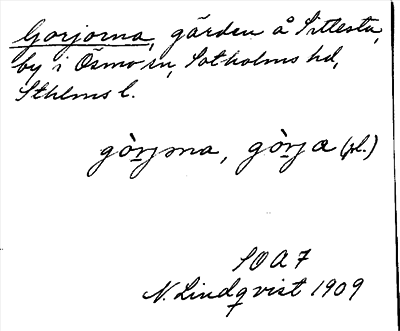 Gorjorna, gården å Sittesta,
by i Ösmo sn, Sotholms hd,
Sthlms l.
gòrjəna, gòrja (pl.)
SOA 7
N. Lindqvist 1909